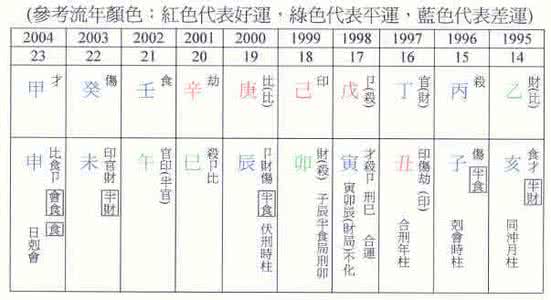 (參考流年顏色：紅色代表好運，綠色代表平運，藍色代表差運)
2004 2003 2002 2001 2000 1999 1998 1997 1996 1995
23 22 21 20 19 18 17 16 15 14
甲 才
癸 傷
壬 食
辛 劫
庚 比(比)
己 印
戊 卩(殺)
丁 官(財)
丙 殺
乙 財(比)
申 比食卩 會食 食
日剋會
未 印官財 半財
午 官印(半官)
巳 殺卩比
辰 卩財傷 半食
伏刑時柱
卯 財(殺)
子辰半食局刑卯
寅 才殺卩 刑巳 合運
寅卯辰(財局)不化
丑 印傷劫(印)
合刑年柱
子 傷 半食
剋會時柱
亥 食才 半財
同沖月柱